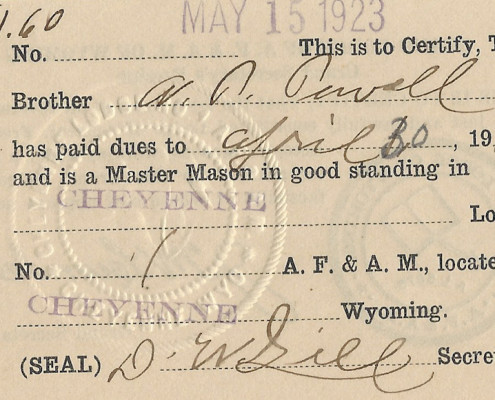 1.60
MAY 15 1923
No. This is to Certify, T
Brother W. P. Powell
has paid dues to April 30, 19,
and is a Master Mason in good standing in
CHEYENNE
Lo
No. 1 A. F. & A. M., locate
CHEYENNE Wyoming.
(SEAL) D. W. Gill Secre